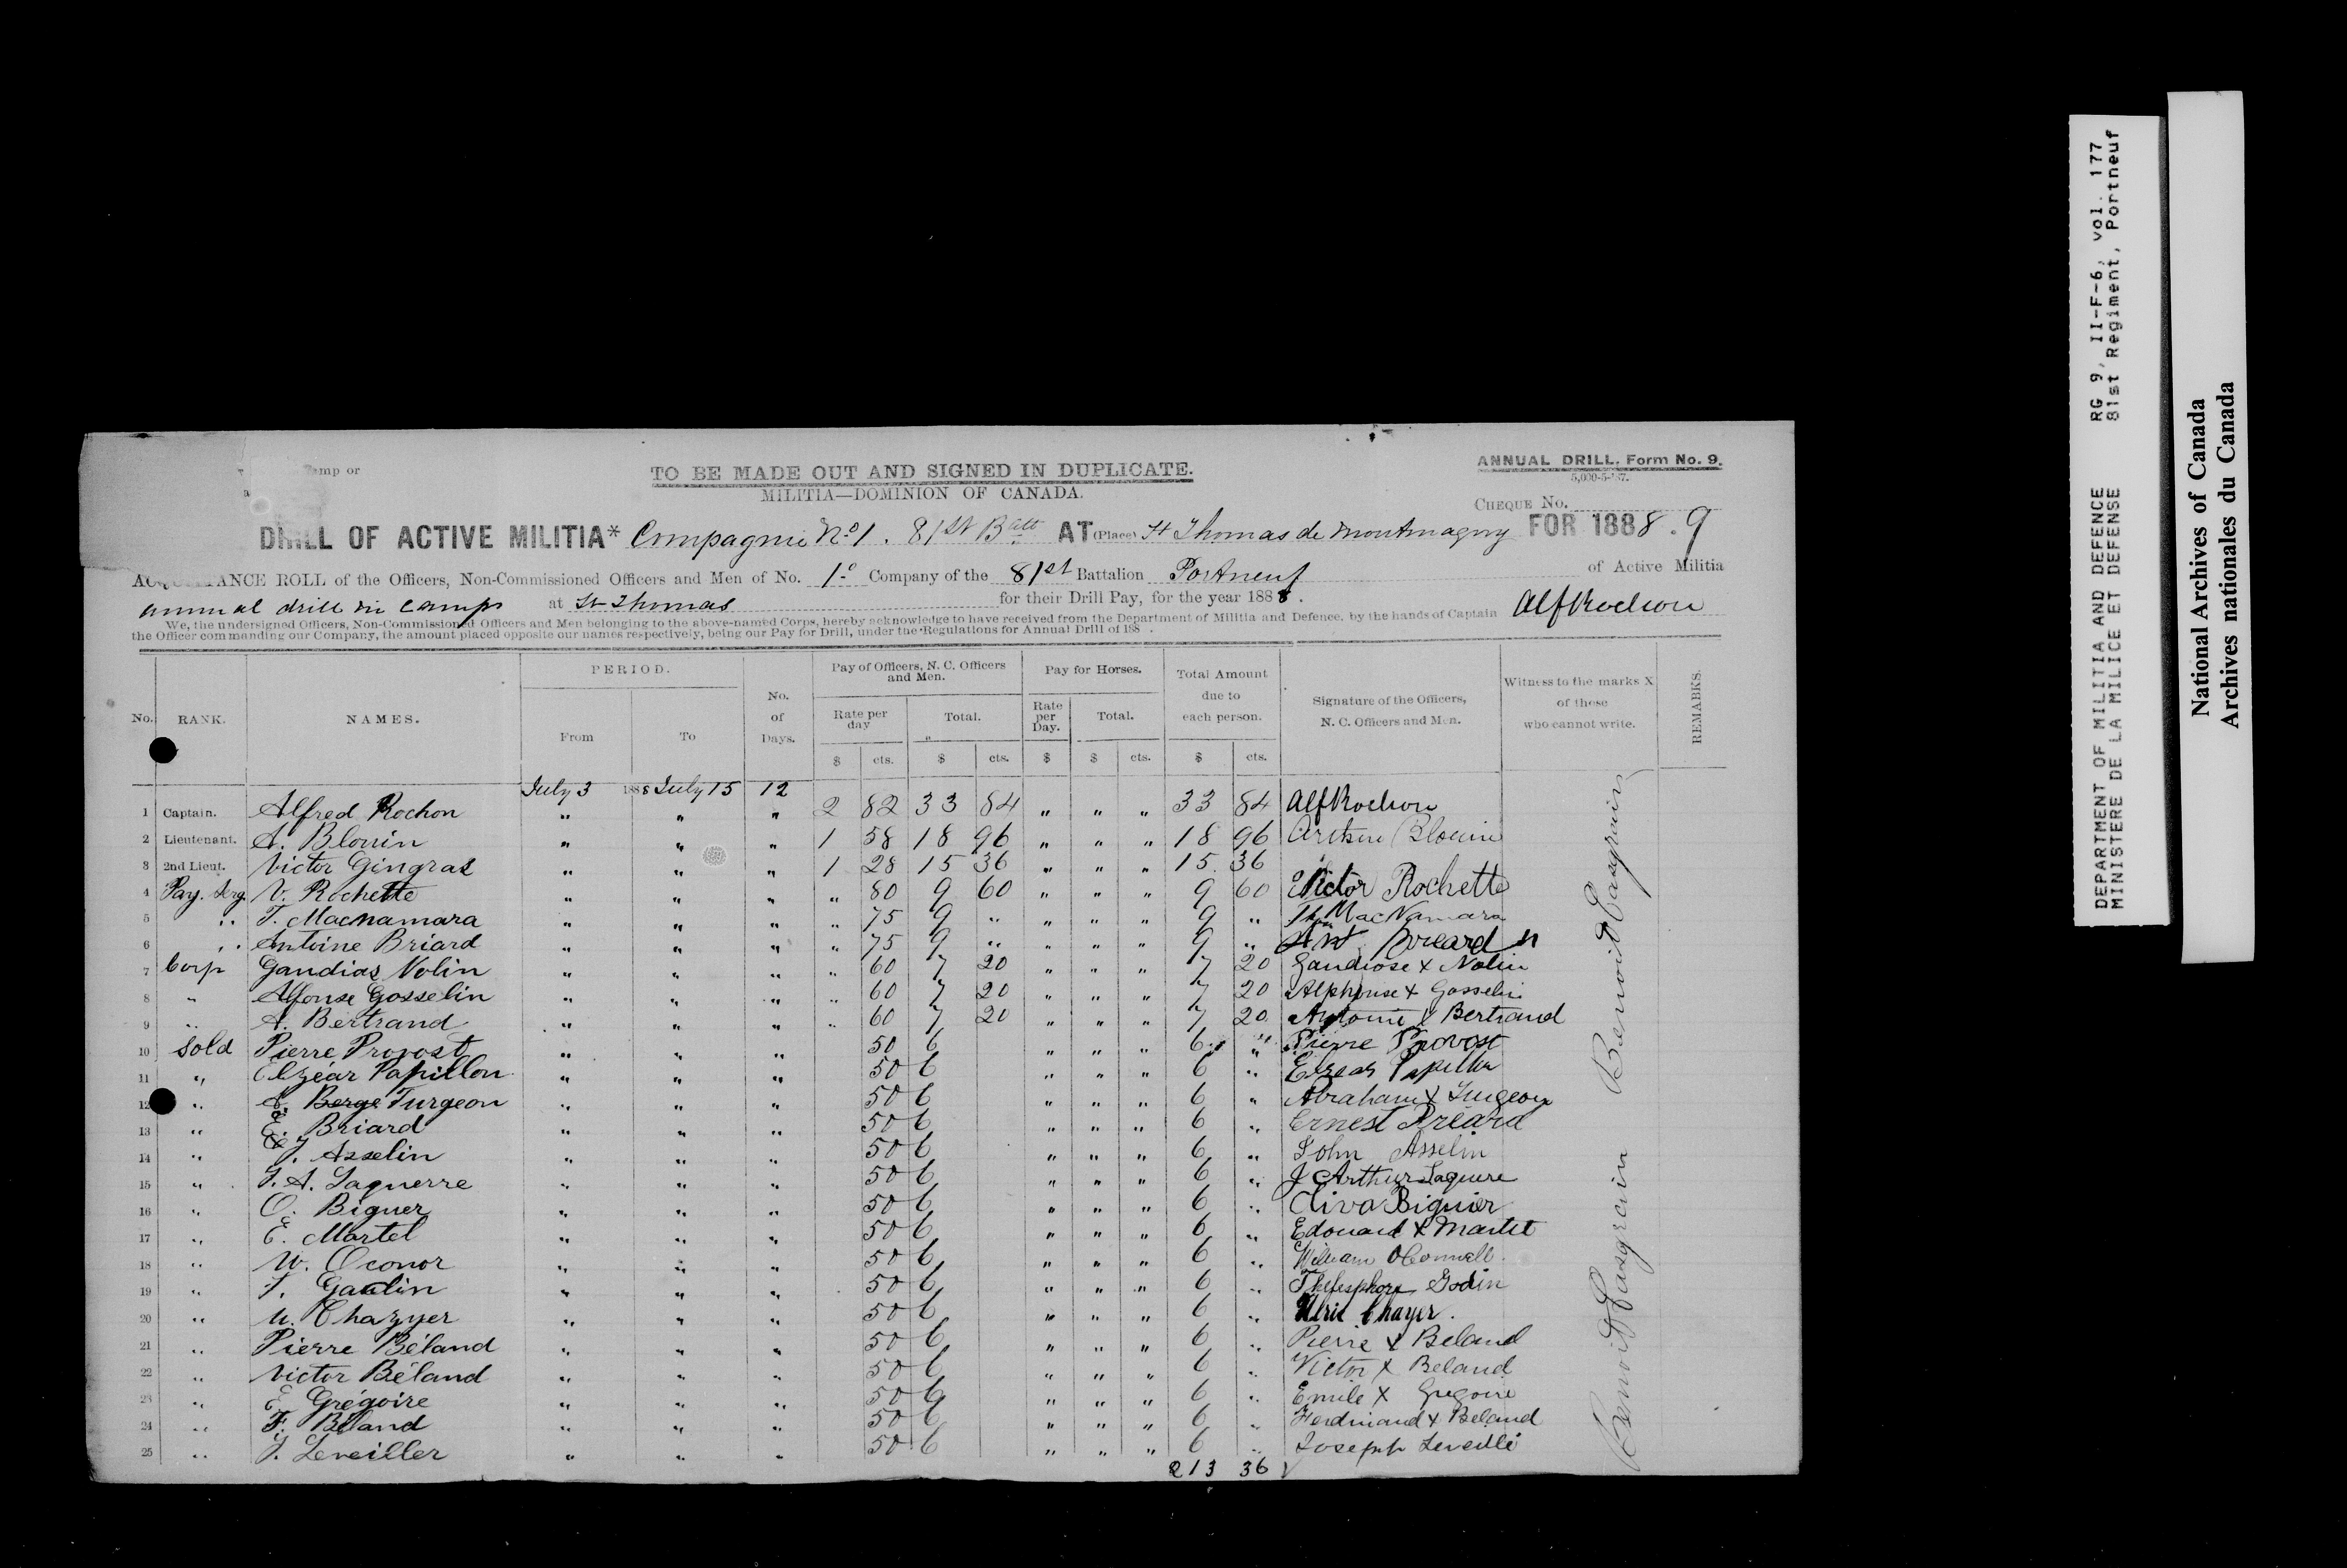 amp or
TO BE MADE OUT AND SIGNED IN DUPLICATE.
ANNUAL DRILL, Form No. 9.
5,000-5-'87.
MILITIA—DOMINION OF CANADA.
CHEQUE No.
DRILL OF ACTIVE MILITIA* Compagnie No 1. 81st Batt AT (Place) St Thomas de Montmagny FOR 1888.9
ACQUITTANCE ROLL of the Officers, Non-Commissioned Officers and Men of No. 1o Company of the 81st Battalion Portneuf of Active Militia
annual drill in camps at St Thomas for their Drill Pay, for the year 1888.
We, the undersigned Officers, Non-Commissioned Officers and Men belonging to the above-named Corps, hereby acknowledge to have received from the Department of Militia and Defence, by the hands of Captain Alf Rochon
the Officer commanding our Company, the amount placed opposite our names respectively, being our Pay for Drill, under the Regulations for Annual Drill of 188 .
No. RANK. NAMES. PERIOD. From To No. of Days. Pay of Officers, N. C. Officers and Men. Rate per day $ cts. Total. $ cts. Pay for Horses. Rate per Day. $ Total. $ cts. Total Amount due to each person. $ cts. Signature of the Officers, N. C. Officers and Men. Witness to the marks X of those who cannot write. REMARKS.
July 3 1888 July 15 12
1 Captain. Alfred Rochon " " " 2 82 33 84 " " " 33 84 Alf Rochon
2 Lieutenant. A. Blouin " " " 1 58 18 96 " " " 18 96 Arthur Blouin
3 2nd Lieut. Victor Gingras " " " 1 28 15 36 " " " 15 36
4 Pay. Serg. V. Rochette " " " " 80 9 60 " " " 9 60 Victor Rochette
5 " T. Macnamara " " " " 75 9 " " " " 9 " Th MacNamara
6 " Antoine Briard " " " " 75 9 " " " " 9 " Ant. Breard
7 Corp Gandias Nolin " " " " 60 7 20 " " " 7 20 Gaudiose x Nolin
8 " Alfonse Gosselin " " " " 60 7 20 " " " 7 20 Alphonse x Gosselin
9 " A. Bertrand " " " " 60 7 20 " " " 7 20 Antoine x Bertrand
10 Sold Pierre Provost " " " 50 6 " " " 6 " Pierre Provost
11 " Elzéar Papillon " " " 50 6 " " " 6 " Elzear Papillon
12 " A. Berge Turgeon " " " 50 6 " " " 6 " Abraham x Turgeon
13 " E. Briard " " " 50 6 " " " 6 " Ernest Bréard
14 " J. Asselin " " " 50 6 " " " 6 " John Asselin
15 " J. A. Laguerre " " " 50 6 " " " 6 " J Arthur Laguere
16 " O. Biguer " " " 50 6 " " " 6 " Oliva Biguier
17 " E. Martel " " " 50 6 " " " 6 " Edouard x Martel
18 " W. Oconor " " " 50 6 " " " 6 " William OConnell
19 " T. Gaudin " " " 50 6 " " " 6 " Thelesphore Godin
20 " U. Chazyer " " " 50 6 " " " 6 " Ulric Chayer.
21 " Pierre Béland " " " 50 6 " " " 6 " Pierre x Beland
22 " Victor Béland " " " 50 6 " " " 6 " Victor x Beland
23 " E. Grégoire " " " 50 6 " " " 6 " Emile x Gregoire
24 " F. Béland " " " 50 6 " " " 6 " Ferdinand x Beland
25 " J. Leveiller " " " 50 6 " " " 6 " Joseph Leveillé
213 36
Benoit Casgrain
Benoit Casgrain
DEPARTMENT OF MILITIA AND DEFENCE RG 9, II-F-6, vol. 177
MINISTERE DE LA MILICE ET DEFENSE 81st Regiment, Portneuf
National Archives of Canada
Archives nationales du Canada